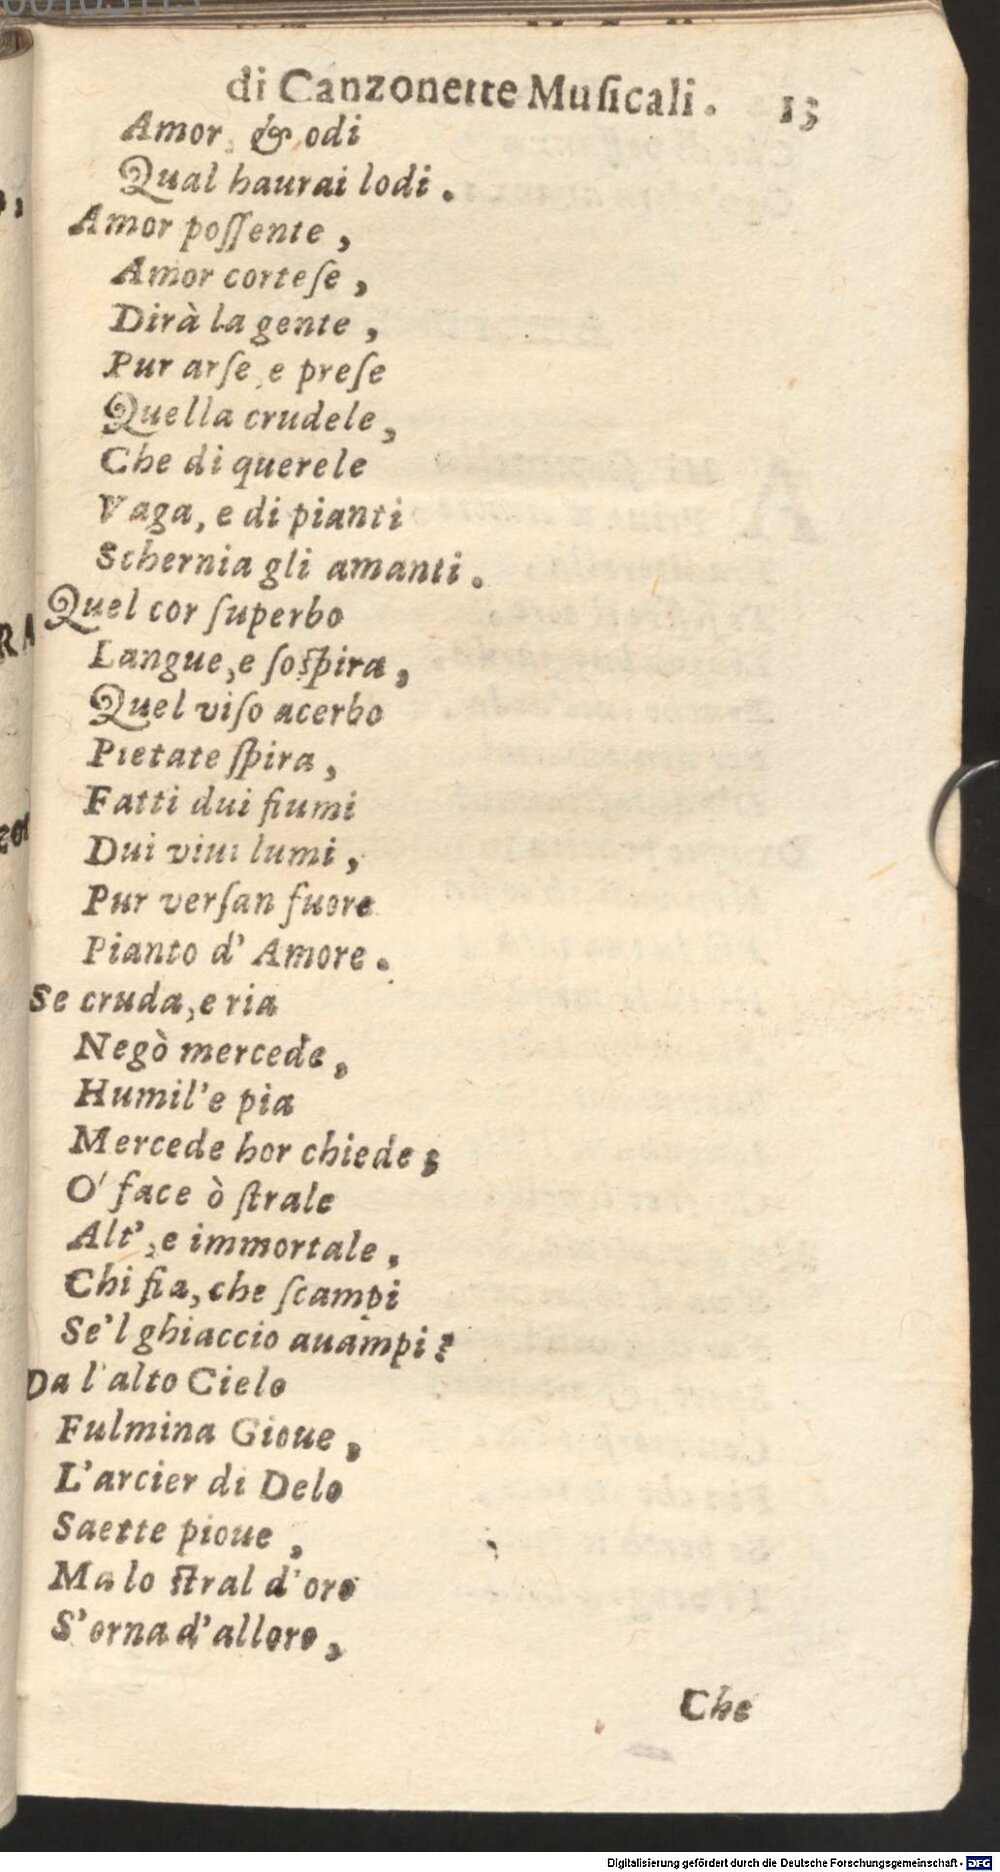 di Canzonette Muſicali. 15
Amor, & odi
Qual haurai lodi.
Amor poſſente,
Amor corteſe,
Dirà la gente,
Pur arſe, e preſe
Quella crudele,
Che di querele
Vaga, e di pianti
Schernia gli amanti.
Quel cor ſuperbo
Langue, e ſoſpira,
Quel viſo acerbo
Pietate ſpira,
Fatti dui fiumi
Dui viui lumi,
Pur verſan fuore
Pianto d' Amore.
Se cruda, e ria
Negò mercede,
Humil'e pia
Mercede hor chiede;
O' face ò ſtrale
Alt', e immortale,
Chi fia, che ſcampi
Se'l ghiaccio auampi?
Da l'alto Cielo
Fulmina Gioue,
L'arcier di Delo
Saette pioue,
Ma lo ſtral d'oro
S'orna d'alloro,
Che
Digitalisierung gefördert durch die Deutsche Forschungsgemeinschaft - DFG